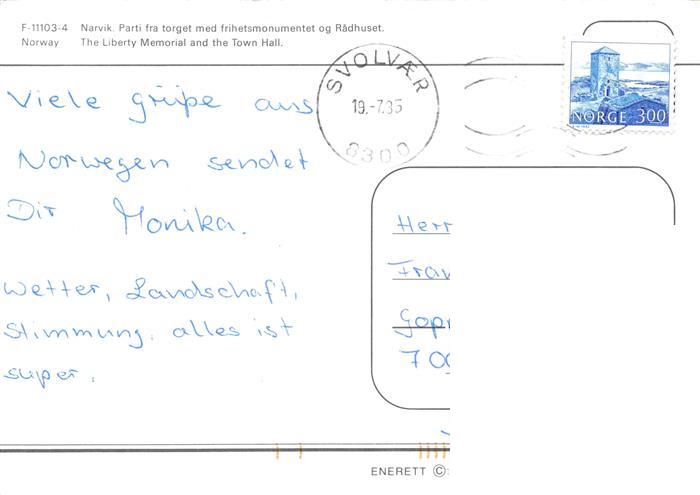 F-11103-4 Narvik. Parti fra torget med frihetsmonumentet og Rådhuset.
Norway The Liberty Memorial and the Town Hall.
SVOLVÆR
19.-7.85
8300
NORGE 300
Viele grüße aus
Norwegen sendet
Dir Monika.
Wetter, Landschaft,
Stimmung, alles ist
super.
Herr
ENERETT ©